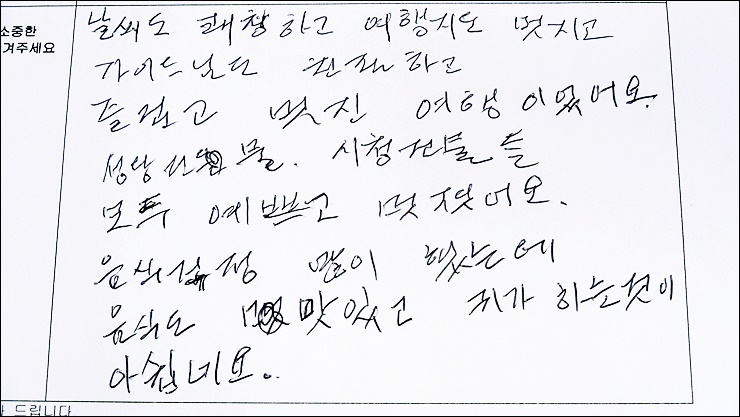 소중한
겨주세요
날씨도 쾌창하고 여행지도 멋지고
가이드님도 친절하고
즐겁고 멋진 여행이었어요.
성당건물. 시청건물들
모두 예쁘고 멋졌어요.
음식걱정 많이 했는데
음식도 맛있고 귀가 하는것이
아쉽네요..
드립니다